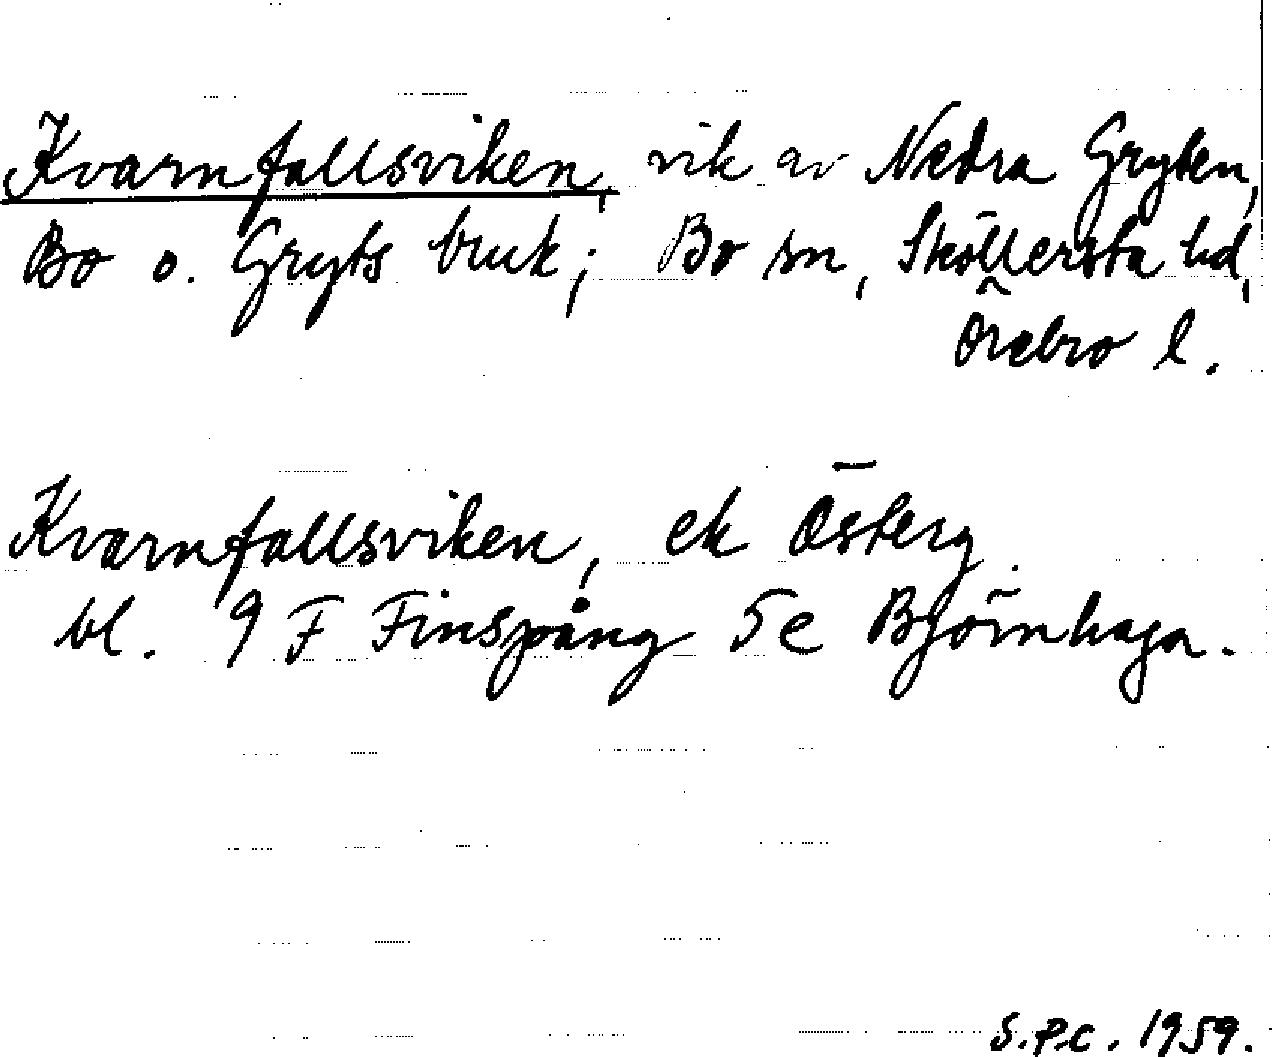 Kvarnfallsviken, vik av Nedra Gryten,
Bo o. Gryts bruk; Bo sn, Sköllersta hd,
Örebro l.
Kvarnfallsviken, ek Österg.
bl. 9 F Finspång 5 e Björnhaga.
S.P.C. 1959.